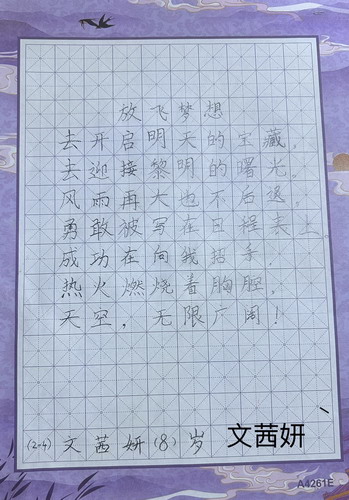 放飞梦想
去开启明天的宝藏。
去迎接黎明的曙光。
风雨再大也不后退。
勇敢被写在日程表上。
成功在向我招手.
热火燃烧着胸腔.
天空，无限广阔！
(2-4) 文茜妍 (8) 岁 文茜妍
A4261E